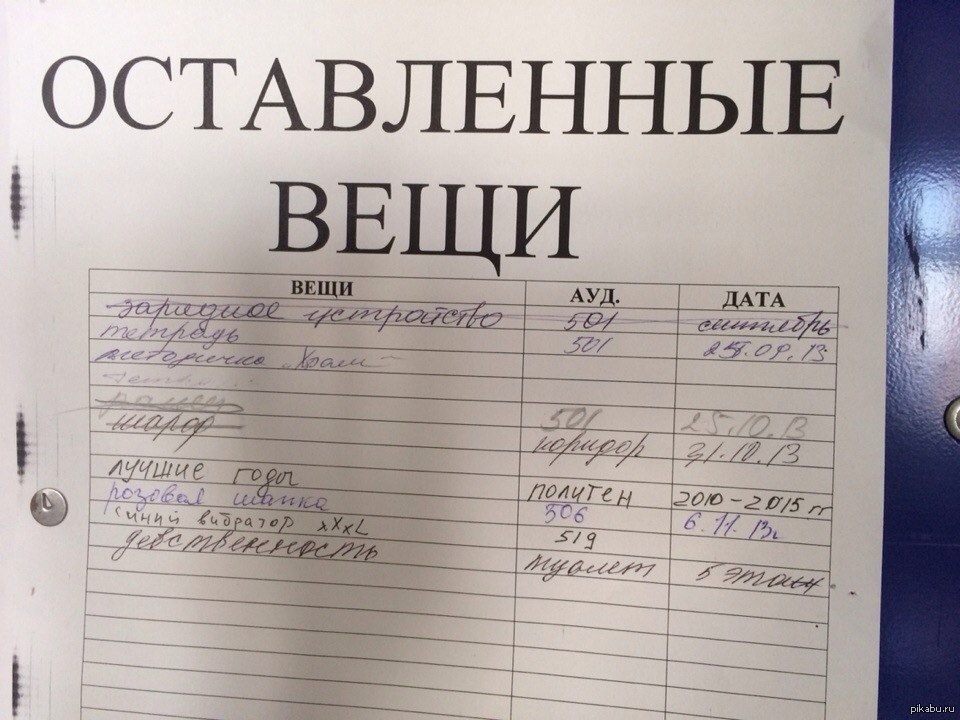 ОСТАВЛЕННЫЕ
ВЕЩИ
ВЕЩИ АУД. ДАТА
зарядное устройство 501 сентябрь
тетрадь 501 25.09.13
методичка „Храм"
шарф 501 25.10.13
коридор 31.10.13
лучшие годы политен 2010-2015 гг
розовая шапка 306 6.11.13г
синий вибратор xXxL 519
девственность туалет 5 этаж
pikabu.ru